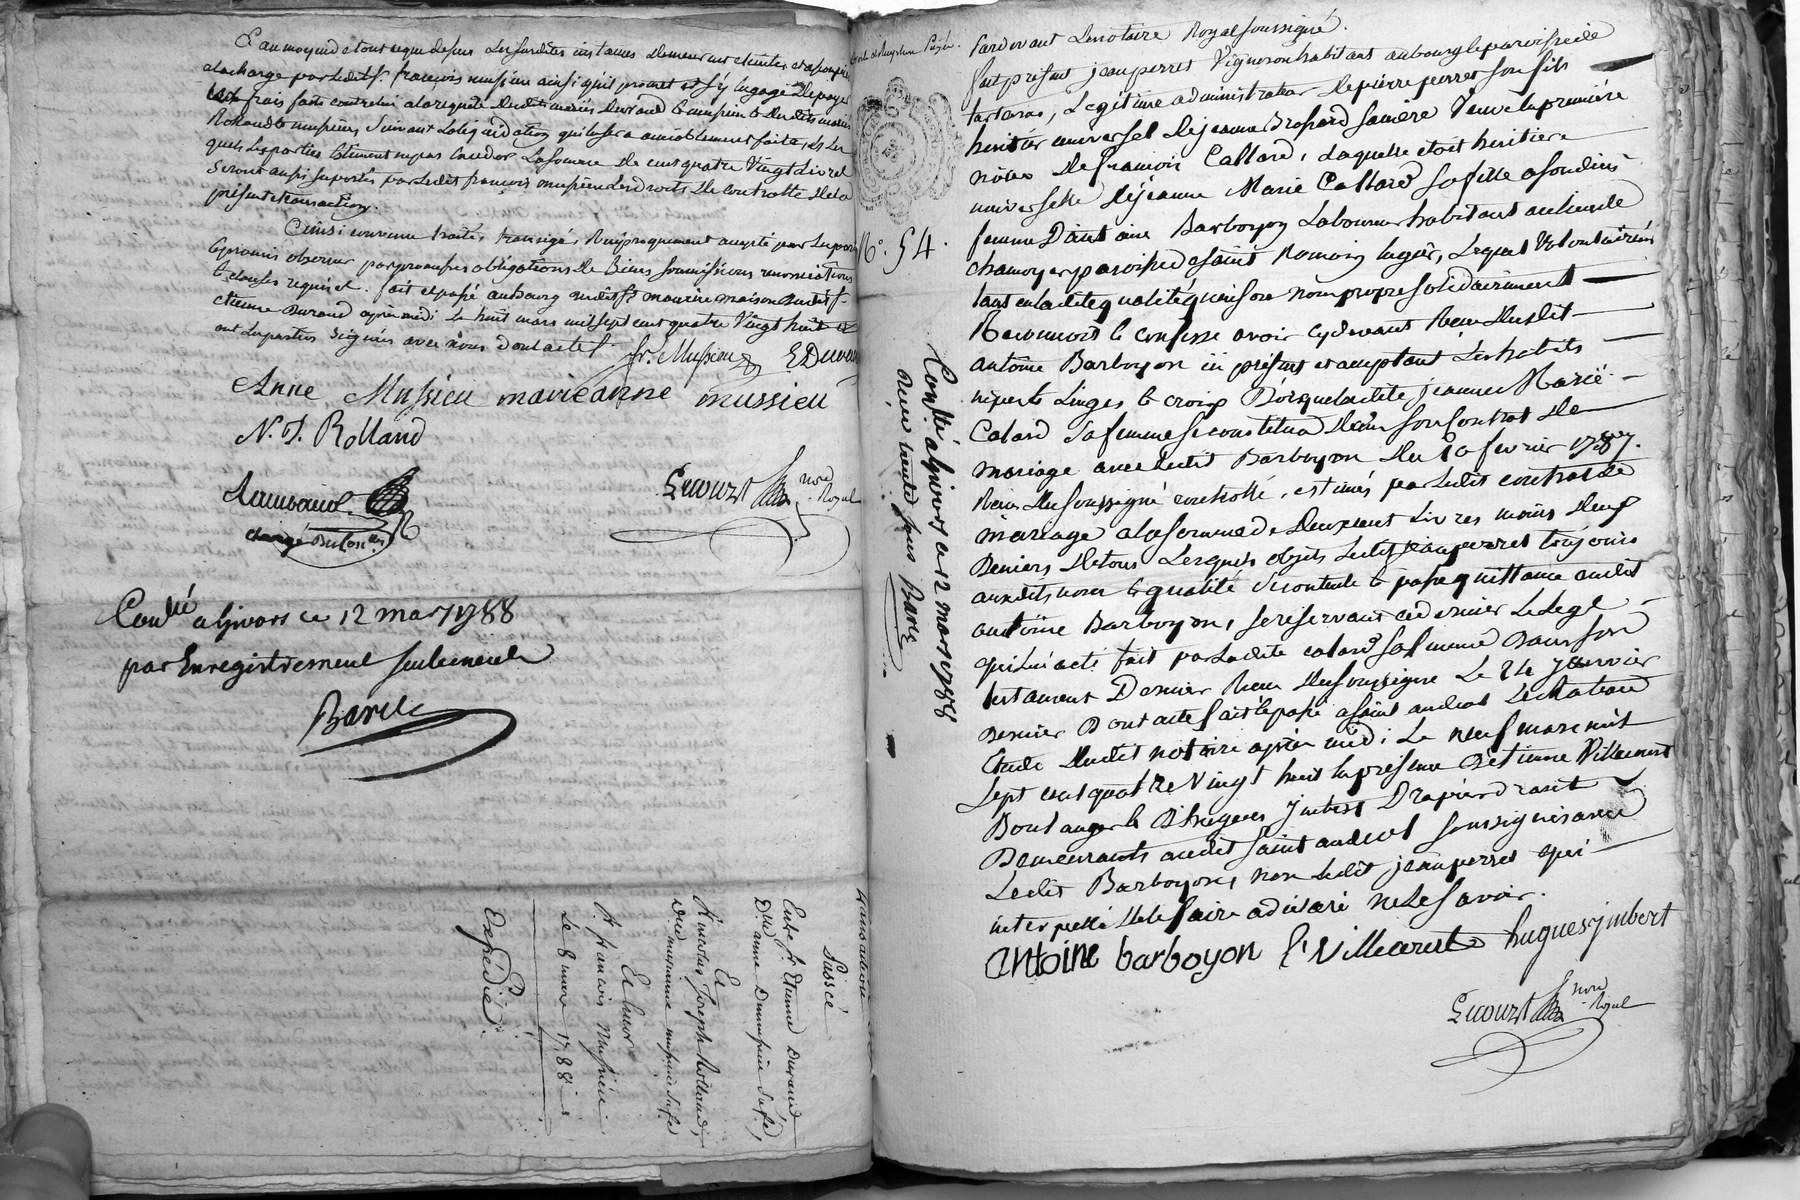 Et au moyen de tout ce que dessus les susdites instances demeurent eteintes et assoupies
a la charge par ledit sr. françois mussieu ainsi qu'il promet et s'y engage de payer
les frais faits contre lui a la requete desdits mariés durand et mussieu et desdits mariés
Rolland et mussieu, suivant la liquidation qui lui sera amiablement faite, les
quels les parties estiment ne pas exceder la somme de cent quatre vingt livres
seront aussi suportés par ledit françois mussieu les droits de controlle de la
présente transaction.
Ainsi convenu traité, transigé, réciproquement accepté par les parties
et promis observer par promesses obligations de biens soumissions renonciations
et clauses requises. fait et passé au bourg dudit st maurice maison dudit sr
etienne durand après midi le huit mars mil sept cent quatre vingt huit et
ont les parties signés avec nous dont acte
fr. Mussieu E. Durand
Anne Mussieu marieanne mussieu
N. J. Rolland
Lecourt nore Royal
Conlé a Givors ce 12 mars 1788
par Enregistrement seulement
Barel
transaction
Entre sr. Etienne Durand
Dlle anne Mussieu sa fe,
Et
sr nicolas joseph Rolland,
Dlle marianne mussieu sa fe
Et encor
Sr. françois Mussieu
Le 8 mars 1788
Expédié.
No. 54.
Conté a givors ce 12 mars 1788
Reçu trente sous Barel
Pardevant Le notaire Royal soussigné.
fut présent jean perret Vigneron habitant au bourg et paroisse de
tartaras, Legitime administrateur de pierre perret son fils
heritier universel de jeanne Brossard sa mère Veuve en première
nôces de françois Callard, laquelle etoit heritiere
universelle de jeanne Marie Callard sa fille a son décès
femme d'antoine Barboyon Laboureur habitant au lieu de
chamoyer paroisse de saint Romain en gier, Lequel volontairement
tant en ladite qualité qu'en son nom propre solidairement
Reconnoit et confesse avoir cy devant Recu dudit
antoine Barboyon ici présent et acceptant les habits
nipes et Linges et croix d'or que ladite jeanne Marie
Calard sa femme se constitua dans son Contrat de
mariage avec ledit Barboyon du 10 fevrier 1787.
Recu du soussigné controllé, estimés par ledit contrat de
mariage a la somme de deux cent Livres moins neuf
deniers de tous Lesquels objets ledit jean perret toujours
auxdits nom et qualité se contente et passe quittance audit
antoine Barboyon, se réservant ce dernier Le legs
qui lui a eté fait par ladite calard sa femme dans son
testament Dernier Recu du soussigné Le 24 janvier
dernier Dont acte fait et passé a saint andeol Le chateau
Etude dudit notaire après midi Le neuf mars mil
Sept cent quatre Vingt huit en présence d'etienne Villecourt
Boulanger et d'hugues jmbert Drapier drapant
Demeurants audit saint andeol soussignés avec
Ledit Barboyon, non ledit jean perret qui
interpellé de le faire a déclaré ne le savoir.
antoine barboyon E. Villecourt hugues jmbert
Lecourt nore Royal